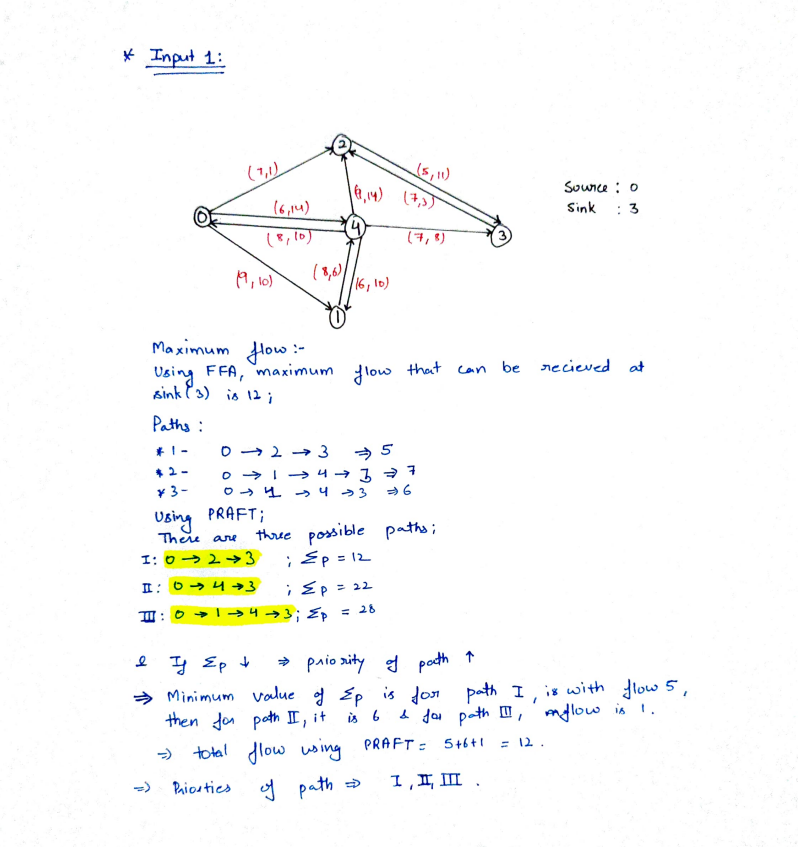 * Input 1:
2
(7,1)
(5,11)
Source : 0
(9,14)
(7,3)
Sink : 3
(6,14)
0
4
(8,10)
(7,8)
3
(9,10)
(8,6)
(6,10)
1
Maximum flow :-
Using FFA, maximum flow that can be recieved at
sink(3) is 12 ;
Paths :
* 1 - 0 → 2 → 3 ⇒ 5
* 2 - 0 → 1 → 4 → 3 ⇒ 7
* 3 - 0 → 4 → 3 ⇒ 6
Using PRAFT ;
There are three possible paths ;
I : 0 → 2 → 3 ; Σp = 12
II : 0 → 4 → 3 ; Σp = 22
III : 0 → 1 → 4 → 3 ; Σp = 28
If Σp ↓ ⇒ priority of path ↑
⇒ Minimum value of Σp is for path I, is with flow 5,
then for path II, it is 6 & for path III, flow is 1.
⇒ total flow using PRAFT = 5+6+1 = 12 .
⇒ Priorties of path ⇒ I, II, III .